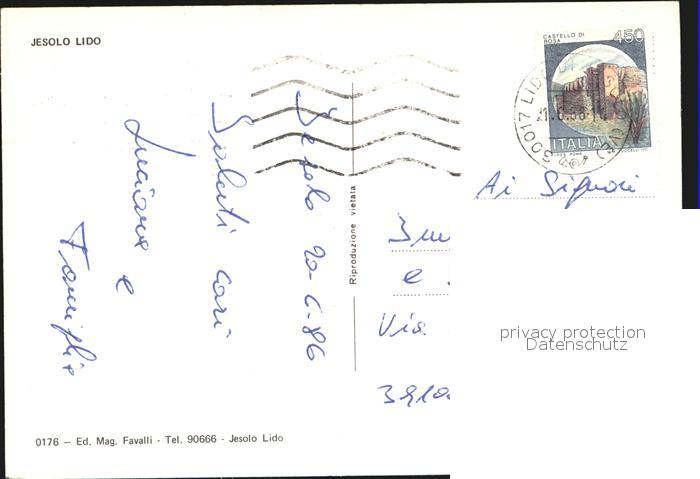 JESOLO LIDO
CASTELLO DI
BOSA
450
30017 LIDO
ITALIA
Jesolo 20-6-86
Saluti cari
Luciana
e
Famiglia
Riproduzione vietata
Ai Signori
e
Via
privacy protection
Datenschutz
0176 — Ed. Mag. Favalli - Tel. 90666 - Jesolo Lido